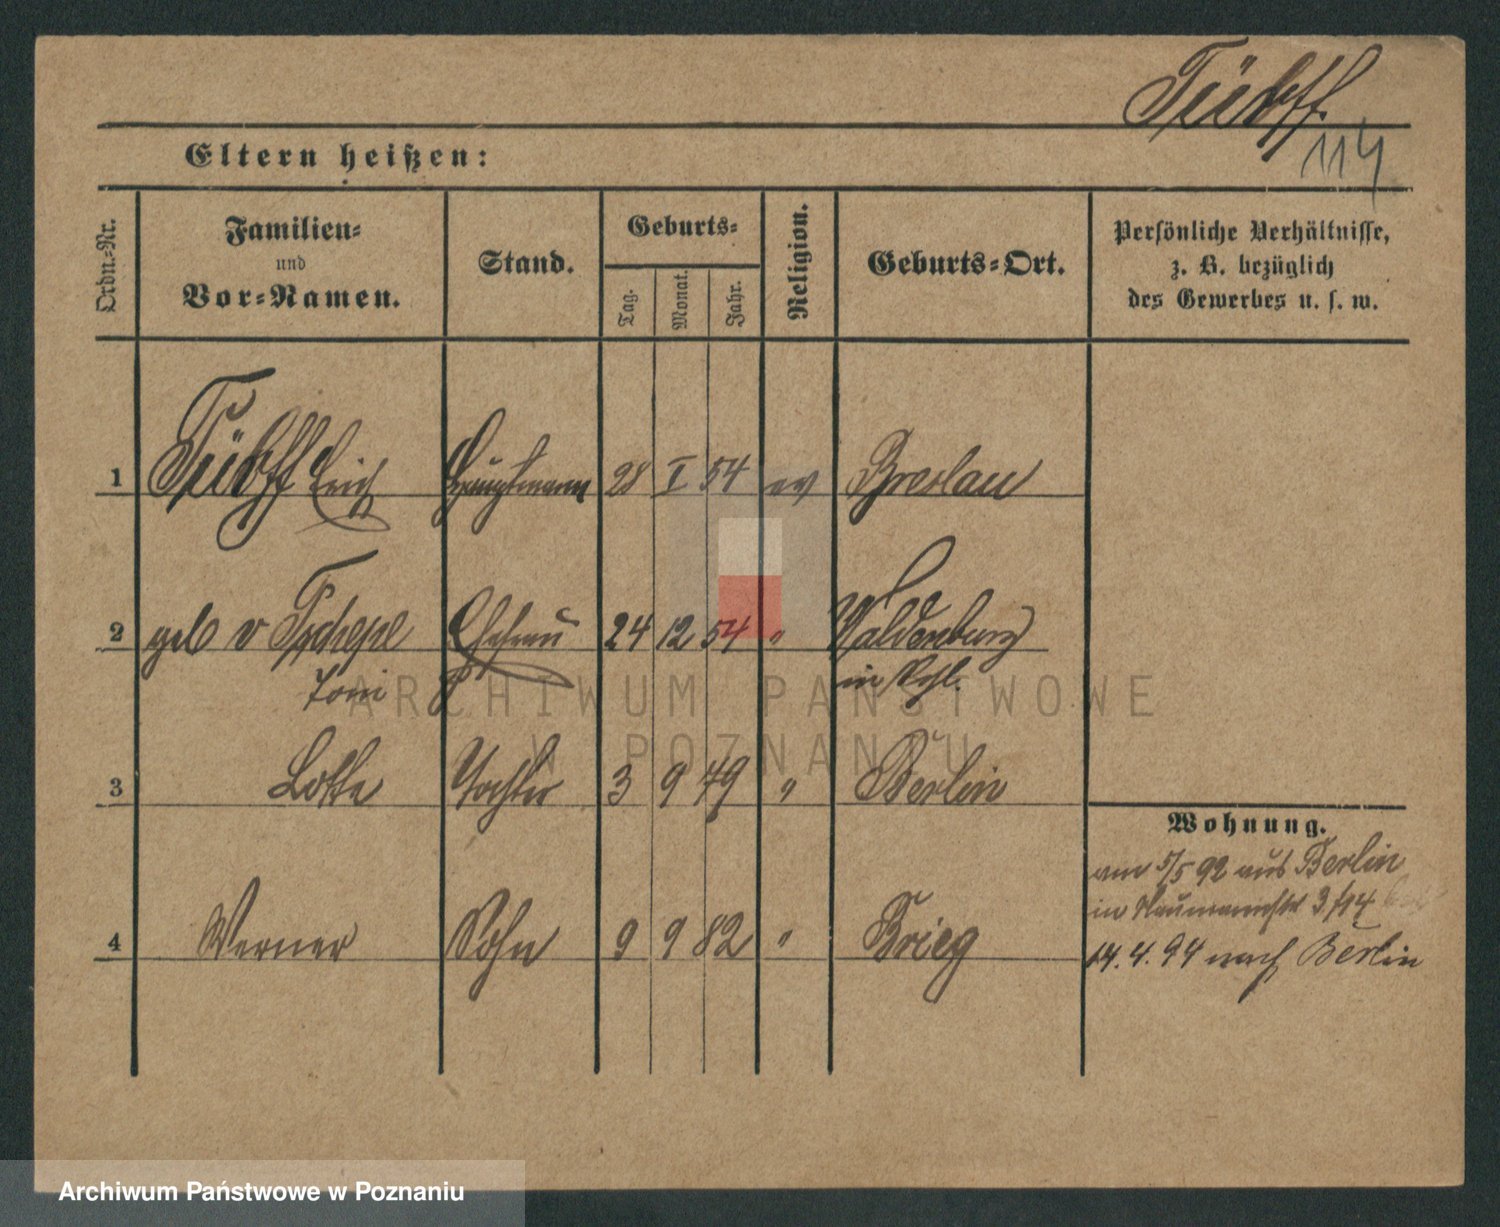 Tülff.
114
Eltern heißen:
Ordn.-Nr.
Familien-
und
Vor-Namen.
Stand.
Geburts-
Tag.
Monat.
Jahr.
Religion.
Geburts-Ort.
Persönliche Verhältnisse,
z. B. bezüglich
des Gewerbes u. s. w.
1 Erich Hauptmann 28 I 54 ev Breslau
2 geb v Tschepe Ehefrau 24 12 54 " Waldenburg
Toni in Schl.
3 Lotte Tochter 3 9 79 " Berlin
4 Werner Sohn 9 9 82 " Brieg
Wohnung.
am 5/5 92 aus Berlin
in Naumannstr 3/14
14.4.94 nach Berlin
ARCHIWUM PAŃSTWOWE
W POZNANIU
Archiwum Państwowe w Poznaniu